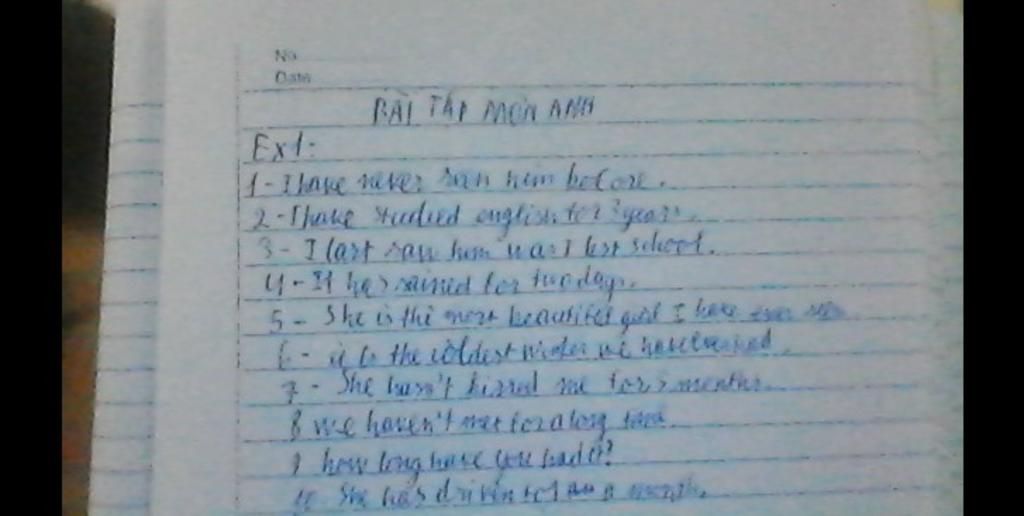 No
Date
BÀI TẬP MÔN ANH
Ex1:
1 - I have never him before.
2 - I have studied english for 3 years.
3 - I last saw him was I school.
4 - It has rained for two days.
5 - She is the most beautiful girl I have ever
6 - it is the coldest winter we have
7 - She hasn't kissed me for 5 months.
8 we haven't met for a long
9 how long have you had it?
10 She has driven a month.